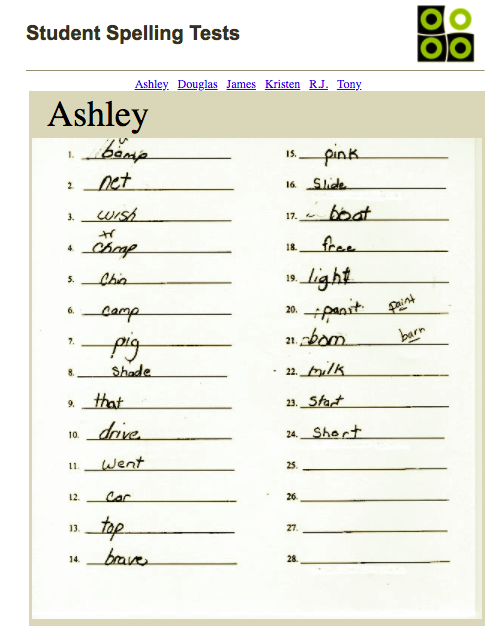 Student Spelling Tests
Ashley Douglas James Kristen R.J. Tony
Ashley
1. bamp
2. net
3. wish
4.
5. Chin
6. camp
7. pig
8. Shade
9. that
10. drive
11. went
12. Car
13. top
14. brave
15. pink
16. Slide
17. boat
18. free
19. light
20. panit paint
21. barn
22. milk
23. Start
24. Short
25.
26.
27.
28.